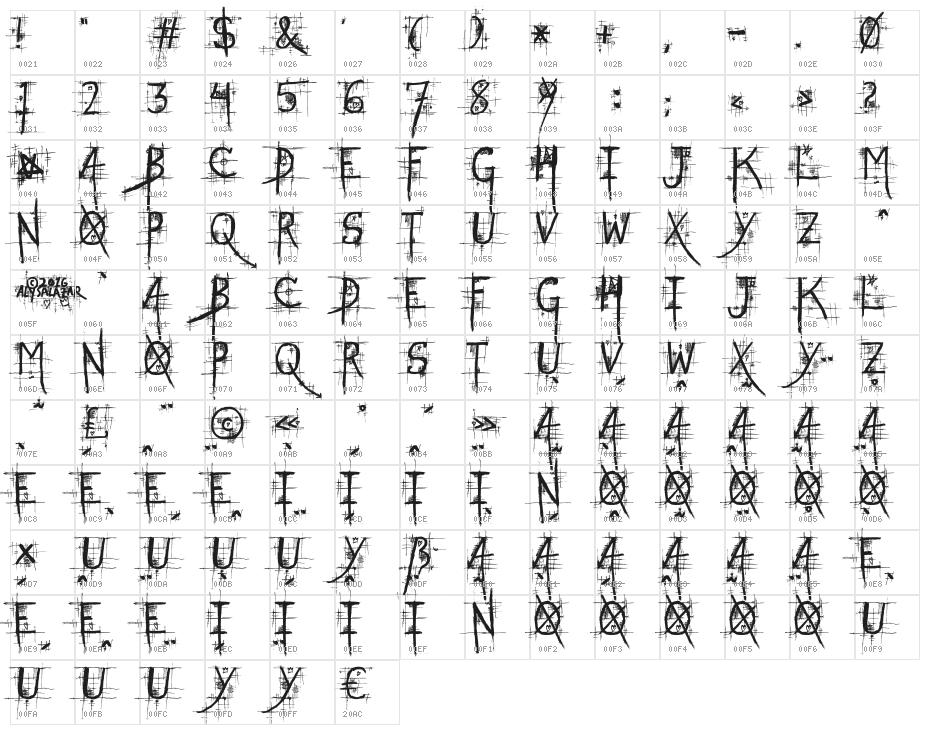 ! " # $ & ' ( ) * + , - . 0
0021 0022 0023 0024 0026 0027 0028 0029 002A 002B 002C 002D 002E 0030
1 2 3 4 5 6 7 8 9 : ; < > ?
0031 0032 0033 0034 0035 0036 0037 0038 0039 003A 003B 003C 003E 003F
A B C D E F G H I J K L M
0040 0041 0042 0043 0044 0045 0046 0047 0048 0049 004A 004B 004C 004D
N O P Q R S T U V W X y Z
004E 004F 0050 0051 0052 0053 0054 0055 0056 0057 0058 0059 005A 005E
©2016 ALYSALAZAR A B C D E F G H I J K L
005F 0060 0061 0062 0063 0064 0065 0066 0067 0068 0069 006A 006B 006C
M N O P Q R S T U V W X y Z
006D 006E 006F 0070 0071 0072 0073 0074 0075 0076 0077 0078 0079 007A
£ © « » A A A A A A
007E 00A3 00A8 00A9 00AB 00BB
E E E E I I I I N O O O O O
00C8 00C9 00CA 00CB 00CC 00CD 00CE 00CF 00D1 00D2 00D3 00D4 00D5 00D6
x U U U U y ß A A A A A A E
00D7 00D9 00DA 00DB 00DC 00DD 00DF 00E0 00E1 00E2 00E3 00E4 00E5 00E8
E E E I I I I N O O O O O U
00E9 00EA 00EB 00EC 00ED 00EE 00EF 00F1 00F2 00F3 00F4 00F5 00F6 00F9
U U U y y €
00FA 00FB 00FC 00FD 00FF 20AC